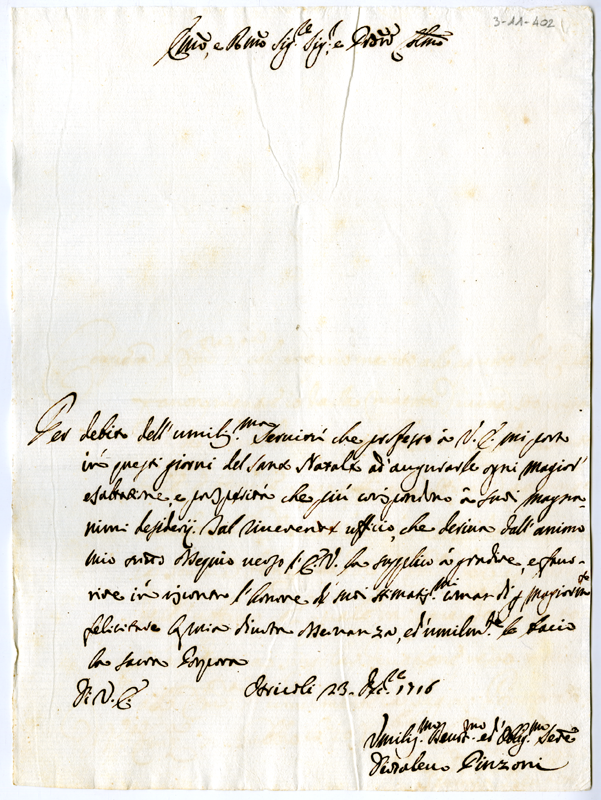 3-11-402
Em̃o, e Rm̃o Sig.re Sig.r, e Prõn Col̃mo
Per debito dell'umiliss.ma Servitù che professo à V. E. mi porto
in questi giorni del Santo Natale ad augurarle ogni magior
esaltazione e prosperità che più corispondino à suoi magna-
nimi desiderij. Dal riverente ufficio, che deriva dall'animo
mio tutto ossequio verso l'E.V. la supplico à gradire, e favo-
rire in riscontro l'honore de suoi stimatiss.mi comandi p magiorm.te
felicitare la mia divota osservanza, ed umilm.te le bacio
la sacra Porpora
Di V. E. Otricoli 23. Xbre 1716
Umiliss.mo Devot.mo ed Oblig.mo Serre
Pinzoni